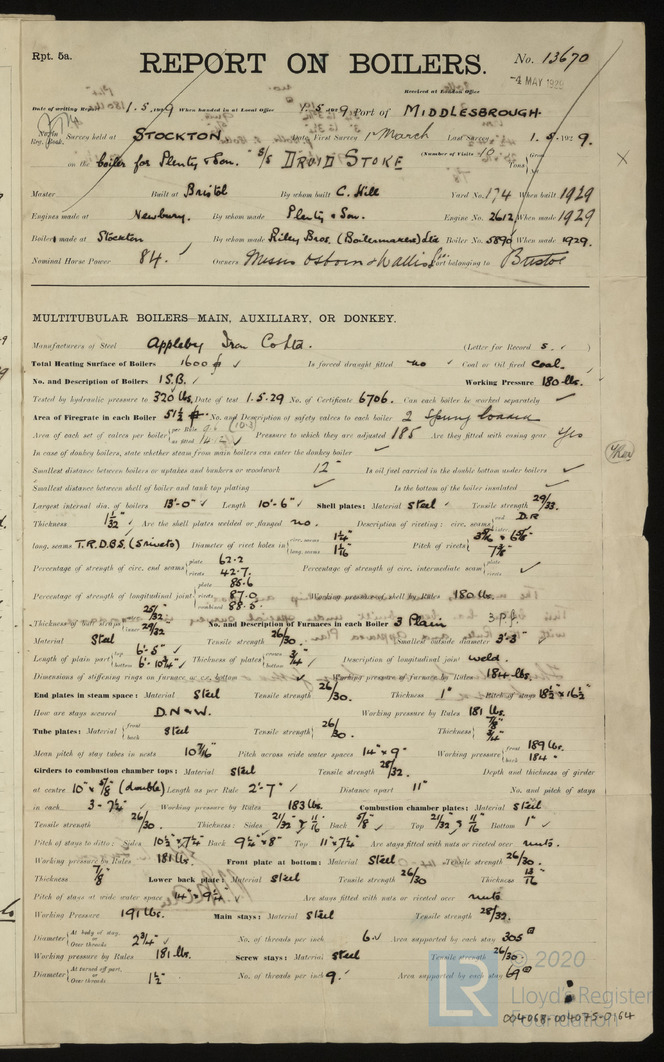 Rpt. 5a.
REPORT ON BOILERS.
No. 13670
Received at London Office
-4 MAY 1929
Date of writing Report 1.5.1929 When handed in at Local Office 5 1929 Port of MIDDLESBROUGH
No. in Reg. Book. Survey held at STOCKTON Date, First Survey 1 March Last Survey 1.5.1929.
(Number of Visits 10)
on the boiler for Plenty & Son. S/S DRUID STOKE Tons { Gross Net
Master Built at Bristol By whom built C. Hill Yard No. 174 When built 1929
Engines made at Newbury. By whom made Plenty & Son. Engine No. 2612 When made 1929
Boilers made at Stockton By whom made Riley Bros. (Boilermakers) Ltd Boiler No. 5890 When made 1929.
Nominal Horse Power 84. Owners Messrs Osborn & Wallis Ltd. Port belonging to Bristol
MULTITUBULAR BOILERS—MAIN, AUXILIARY, OR DONKEY.
Manufacturers of Steel Appleby Iron Co Ltd. (Letter for Record S. )
Total Heating Surface of Boilers 1600 Is forced draught fitted no Coal or Oil fired coal.
No. and Description of Boilers 1 S.B. Working Pressure 180 lbs.
Tested by hydraulic pressure to 320 lbs. Date of test 1.5.29 No. of Certificate 6706. Can each boiler be worked separately
Area of Firegrate in each Boiler 51½ No. and Description of safety valves to each boiler 2 Spring loaded
Area of each set of valves per boiler { per Rule as fitted Pressure to which they are adjusted 185 Are they fitted with easing gear Yes
In case of donkey boilers, state whether steam from main boilers can enter the donkey boiler
Smallest distance between boilers or uptakes and bunkers or woodwork 12" Is oil fuel carried in the double bottom under boilers
Smallest distance between shell of boiler and tank top plating Is the bottom of the boiler insulated
Largest internal dia. of boilers 13'-0" Length 10'-6" Shell plates: Material steel Tensile strength 29/33.
Thickness 1 1/32 Are the shell plates welded or flanged no. Description of riveting: circ. seams { end D.R inter.
long. seams T.R.D.B.S. (5 rivets) Diameter of rivet holes in { circ. seams 1¼" long. seams 1 1/16" Pitch of rivets { 7⅞"
Percentage of strength of circ. end seams { plate 62.2 rivets 42.7. Percentage of strength of circ. intermediate seam { plate rivets
Percentage of strength of longitudinal joint { plate 85.6 rivets 87.0 combined 88.5 Working pressure of shell by Rules 180 lbs.
Thickness of butt straps { outer 25/32 inner 29/32 No. and Description of Furnaces in each Boiler 3 Plain
Material Steel Tensile strength 26/30. Smallest outside diameter 3'-3"
Length of plain part { top 6'-5" bottom 6'-10¾" Thickness of plates { crown bottom 3/4" Description of longitudinal joint weld.
Dimensions of stiffening rings on furnace or c.c. bottom Working pressure of furnace by Rules 184 lbs.
End plates in steam space: Material steel Tensile strength 26/30. Thickness 1" Pitch of stays 18½" x 16½"
How are stays secured D.N & W. Working pressure by Rules 181 lbs.
Tube plates: Material { front back steel Tensile strength { 26/30. Thickness { 7/8" 3/4"
Mean pitch of stay tubes in nests 10 7/16" Pitch across wide water spaces 14" x 9" Working pressure { front 189 lbs. back 184 "
Girders to combustion chamber tops: Material steel Tensile strength 28/32. Depth and thickness of girder
at centre 10" x 5/8" (double) Length as per Rule 2'-7" Distance apart 11" No. and pitch of stays
in each 3 - 7¼" Working pressure by Rules 183 lbs. Combustion chamber plates: Material steel
Tensile strength 26/30. Thickness: Sides 21/32 & 11/16 Back 5/8 Top 21/32 & 11/16 Bottom 1"
Pitch of stays to ditto: Sides 10½" x 7¼" Back 9¼" x 8" Top 11" x 7¼" Are stays fitted with nuts or riveted over nuts.
Working pressure by Rules 181 lbs. Front plate at bottom: Material steel Tensile strength 26/30.
Thickness 7/8" Lower back plate: Material steel Tensile strength 26/30 Thickness 13/16"
Pitch of stays at wide water space 14" x 9¼" Are stays fitted with nuts or riveted over nuts
Working Pressure 191 lbs. Main stays: Material steel Tensile strength 28/32.
Diameter { At body of stay, or Over threads 2¾" No. of threads per inch 6 Area supported by each stay 305
Working pressure by Rules 181 lbs. Screw stays: Material steel Tensile strength 26/30
Diameter { At turned off part, or Over threads 1½" No. of threads per inch 9. Area supported by each stay 69
© 2020
LR
Lloyd's Register
Foundation
004068-004075-0164